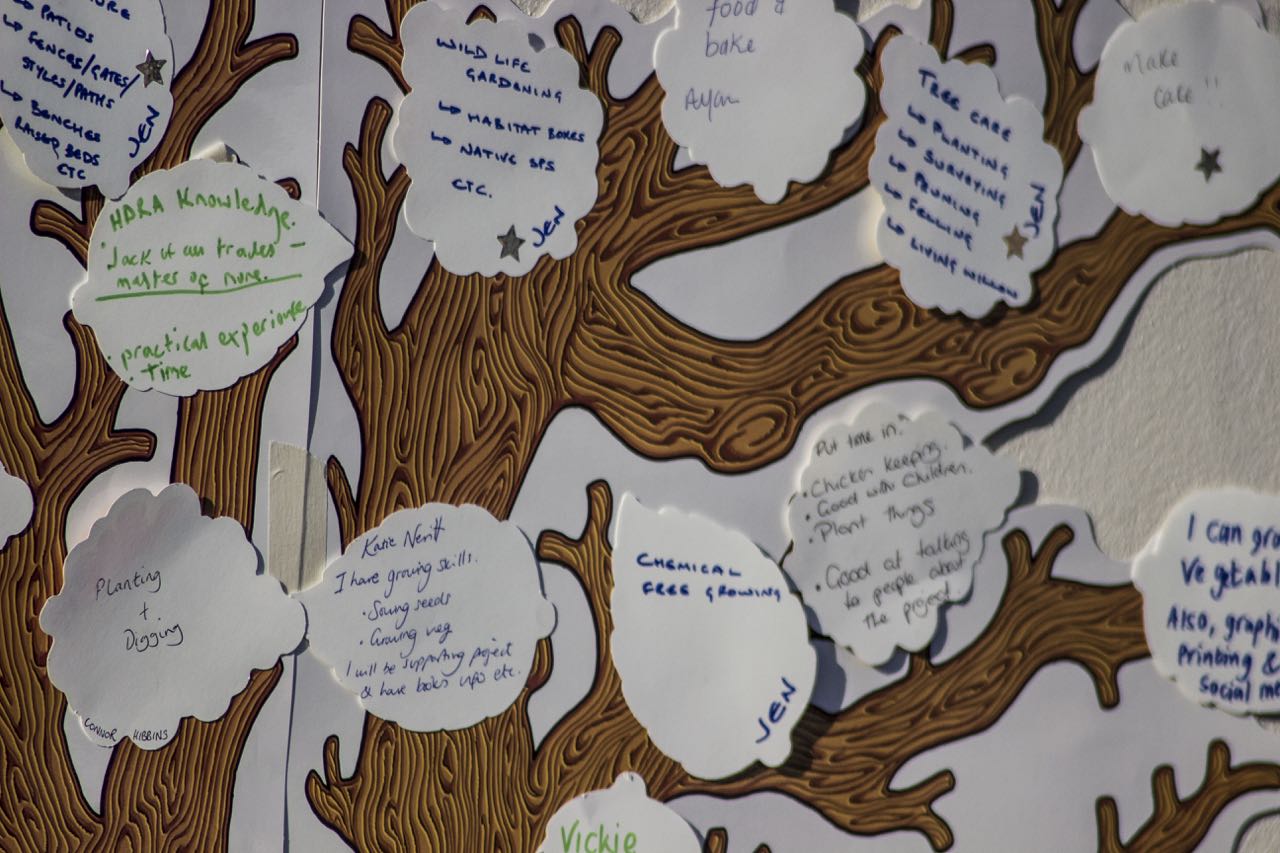 PATIOS
↳ FENCES/GATES/
STYLES/PATHS
↳ BENCHES
RAISED BEDS
ETC
JEN
HDRA Knowledge.
• Jack of all trades –
master of none.
• practical experience
• Time
WILD LIFE
GARDENING
↳ HABITAT BOXES
↳ NATIVE SPS
ETC.
JEN
food &
bake
TREE CARE
↳ PLANTING
↳ SURVEYING
↳ PRUNING
↳ FELLING
↳ LIVING WILLOW
JEN
Make
Cake!!
Planting
+
Digging
CONNOR HIBBINS
Katie
I have growing skills.
• Sowing seeds
• Growing veg
I will be supporting project
& have books info etc.
CHEMICAL
FREE GROWING
JEN
Put time in.
• Chicken keeping.
• Good with children.
• Plant things
• Good at talking
to people about
the project
I can
Also,
Printing &
social
Vickie